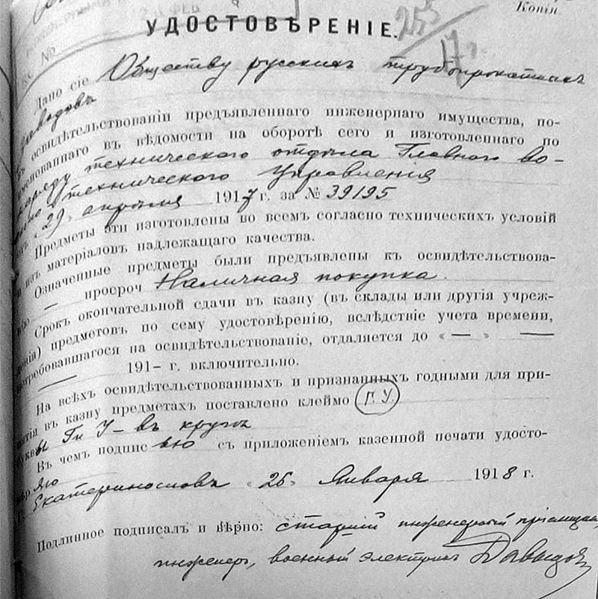 Копія
УДОСТОВѢРЕНІЕ.
253
17 г.
№
Дано сіе Обществу русскихъ трубопрокатныхъ
заводовъ
освидѣтельствованіи предъявленнаго инженернаго имущества, по-
въ вѣдомости на оборотѣ сего и изготовленнаго по
наряду техническаго отдѣла Главнаго во-
техническаго Управленія
29 апрѣля 1917 г. за № 39195
Предметы эти изготовлены во всемъ согласно техническихъ условій
изъ матеріаловъ надлежащаго качества.
Означенные предметы были предъявлены къ освидѣтельствова-
— просроч Наличная покупка.
Срокъ окончательной сдачи въ казну (въ склады или другія учреж-
денія) предметовъ по сему удостовѣренію, вслѣдствіе учета времени,
потребовавшагося на освидѣтельствованіе, отдаляется до «—» —
— 191- г. включительно.
На всѣхъ освидѣтельствованныхъ и признанныхъ годными для прі-
въ казну предметахъ поставлено клеймо Г.У
буквы Г и У — въ кругѣ
Въ чемъ подписью съ приложеніемъ казенной печати удосто-
Екатеринославъ «26» Января 1918 г.
Подлинное подписалъ и вѣрно: старшій инженерный пріемщикъ,
инженеръ, военный электрикъ Давыдовъ